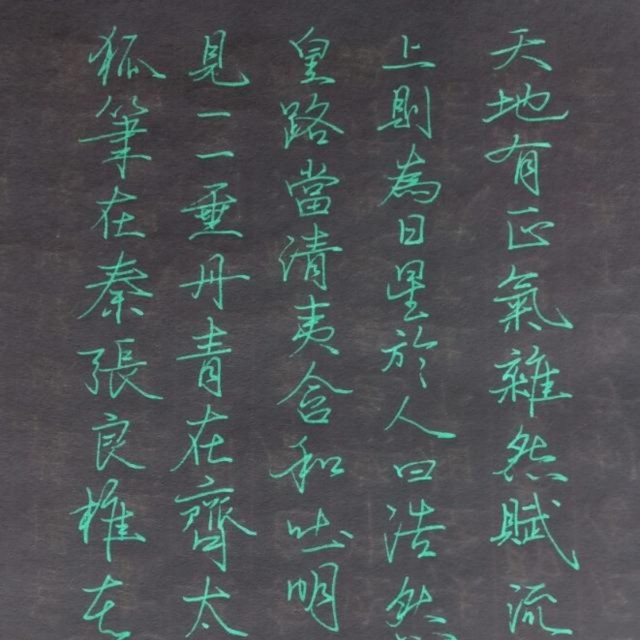 天地有正氣雜然賦流
上則為日星於人曰浩然
皇路當清夷含和吐明
見一一垂丹青在齊太
狐筆在秦張良椎在